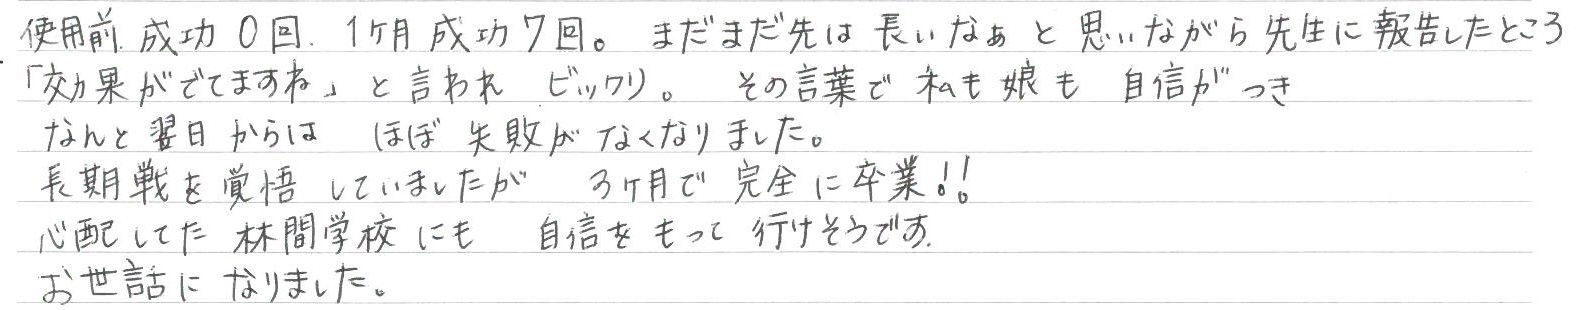 使用前 成功0回. 1ケ月 成功7回。 まだまだ先は長いなぁと思いながら先生に報告したところ
「効果がでてますね」と言われ ビックリ。 その言葉で私も娘も 自信がつき
なんと翌日からは ほぼ失敗がなくなりました。
長期戦を覚悟していましたが 3ヶ月で完全に卒業!!
心配してた林間学校にも 自信をもって行けそうです.
お世話になりました。